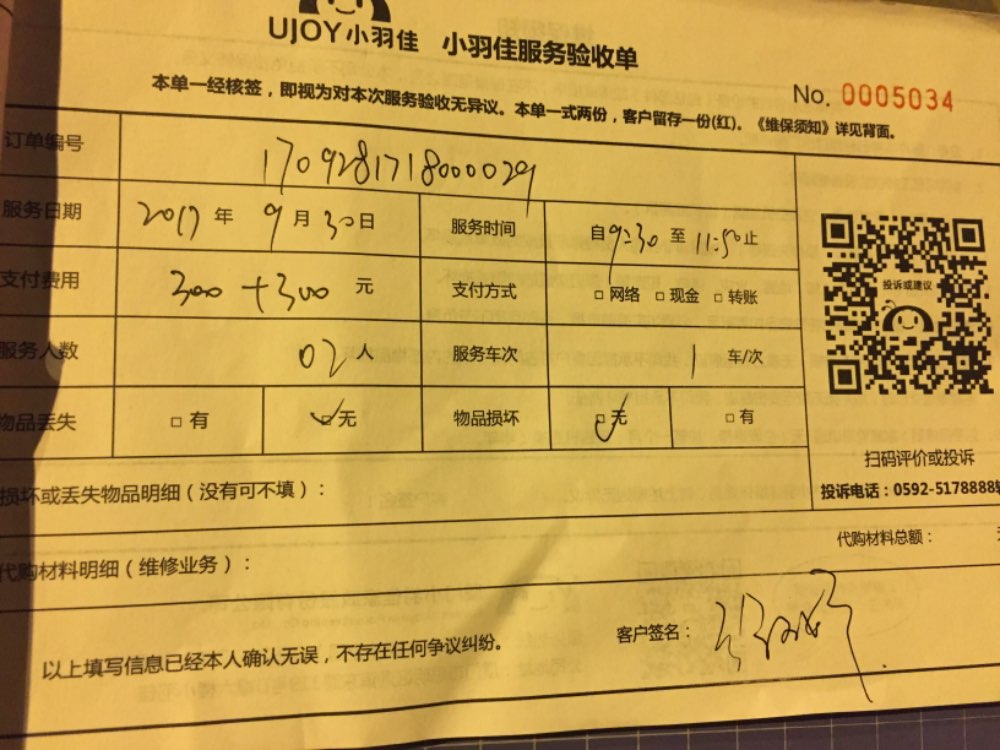 UJOY小羽佳 小羽佳服务验收单
No. 0005034
本单一经核签，即视为对本次服务验收无异议。本单一式两份，客户留存一份(红)。《维保须知》详见背面。
订单编号 1709281718000029
服务日期 2017 年 9 月 30 日 服务时间 自 9:30 至 11:50 止
支付费用 300+300 元 支付方式 □ 网络 □ 现金 □ 转账
服务人数 02 人 服务车次 1 车/次
物品丢失 □ 有 ☑ 无 物品损坏 ☑ 无 □ 有
投诉或建议
扫码评价或投诉
投诉电话：0592-5178888
损坏或丢失物品明细（没有可不填）：
代购材料明细（维修业务）：
代购材料总额：
以上填写信息已经本人确认无误，不存在任何争议纠纷。
客户签名：